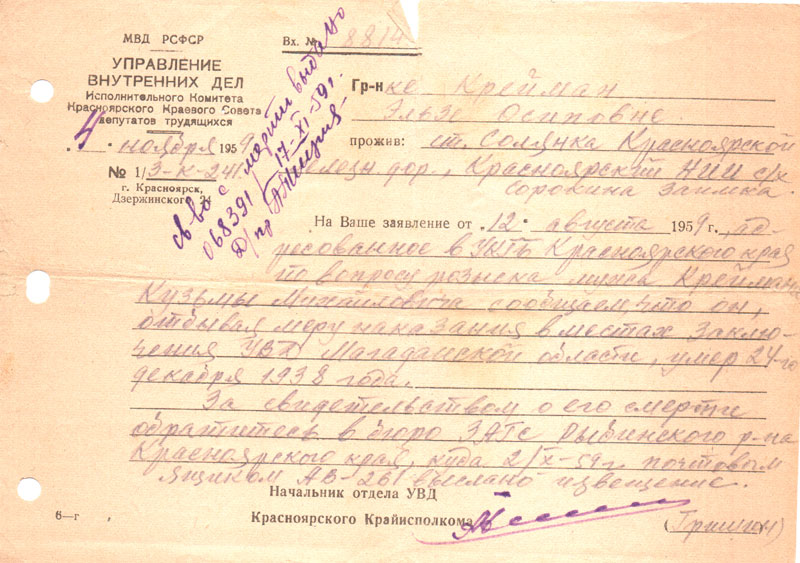 МВД РСФСР
УПРАВЛЕНИЕ
ВНУТРЕННИХ ДЕЛ
Исполнительного Комитета
Красноярского Краевого Совета
депутатов трудящихся
4 ноября 1959
№ 1/3-К-241
г. Красноярск,
Дзержинского 21
Вх. № 8814
св-во о выдано
068391 17-XI-59г.
Гр-нке Крейман
Эльзе Осиповне
прожив: ст. Солянка Красноярской
дор., Красноярский НИИ с/х
Сорокина Заимка.
На Ваше заявление от 12 августа 1959 г., ад-
ресованное в УКГБ Красноярского края
по вопросу розыска мужа Крейман
Кузьмы Михайловича сообщаем, что он,
отбывая меру наказания в местах заклю-
чения Магаданской области, умер 24-го
декабря 1938 года.
За свидетельством о его смерти
обратитесь в бюро ЗАГС Рыбинского р-на
Красноярского края, куда 2/X-59г. почтовым
ящиком АВ-261 выслано извещение.
Начальник отдела УВД
Красноярского Крайисполкома
(Гришин)
6—г